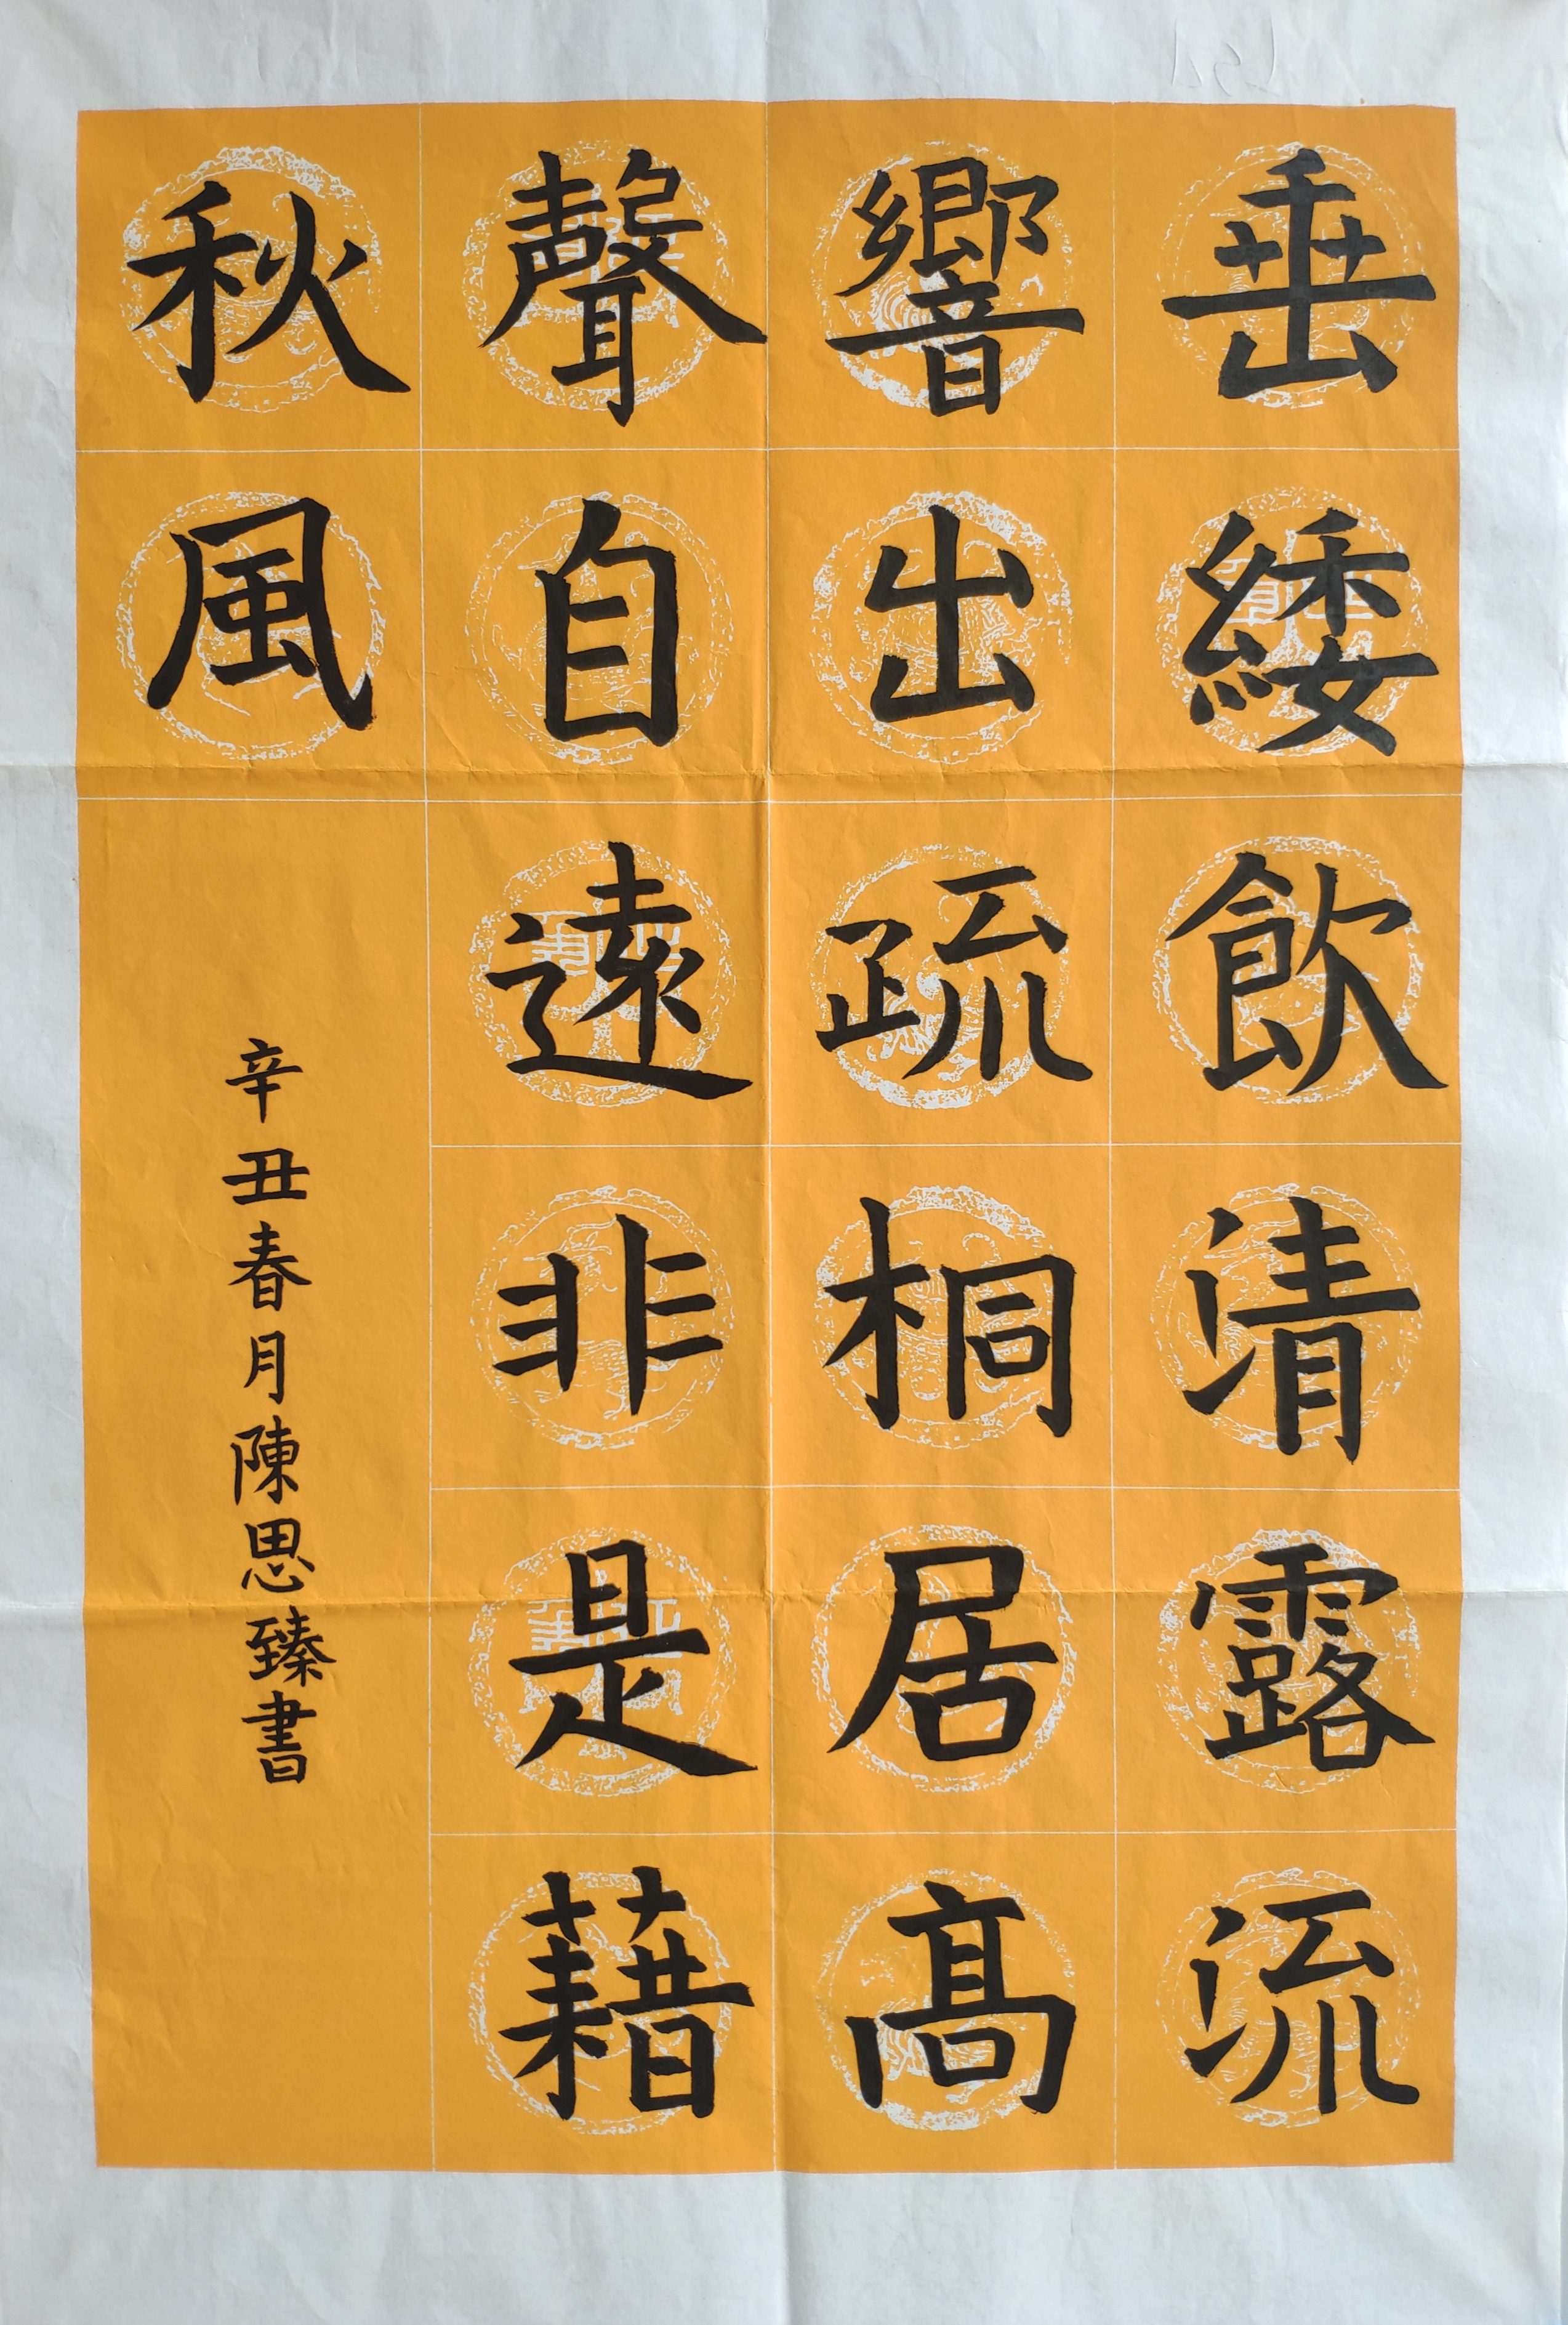 垂緌飲清露流
響出疏桐居高
聲自遠非是藉
秋風
辛丑春月陳思臻書